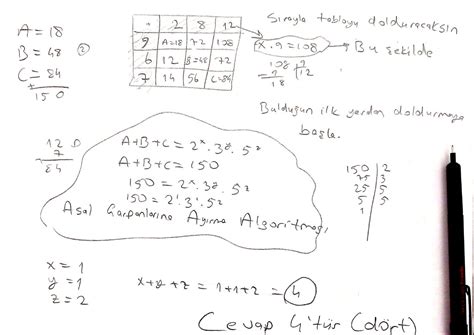 A = 18
B = 48
C = 84
+
150
· 2 8 12
9 A=18 72 108
6 12 B=48 72
7 14 56 C=84
Sırayla tabloyu dolduracaksın
x · 9 = 108 → Bu şekilde
108 9
9 12
18
Bulduğun ilk yerden doldurmaya
başla.
12
7
84
A+B+C = 2ˣ . 3ʸ . 5ᶻ
A+B+C = 150
150 = 2ˣ . 3ʸ . 5ᶻ
150 = 2¹ . 3¹ . 5²
Asal Çarpanlarına Ayırma Algoritması
150 2
75 3
25 5
5 5
1
x = 1
y = 1
z = 2
x+y+z = 1+1+2 = 4
Cevap 4'tür (dört)